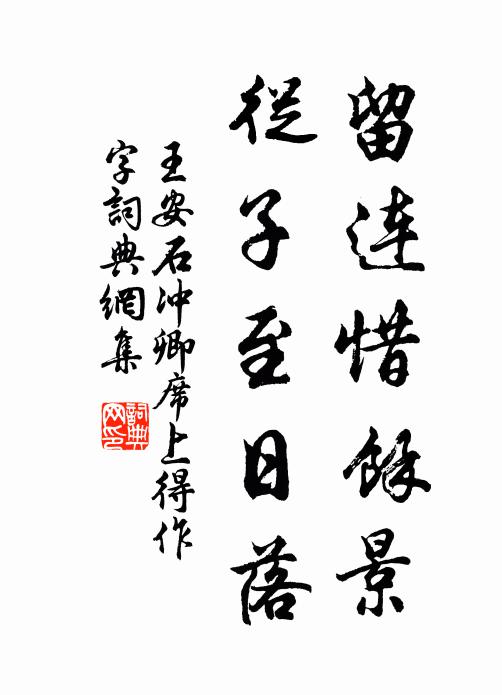 留連惜餘景
從子至日落
王安石沖卿席上得作
字詞典網集
詞典网印